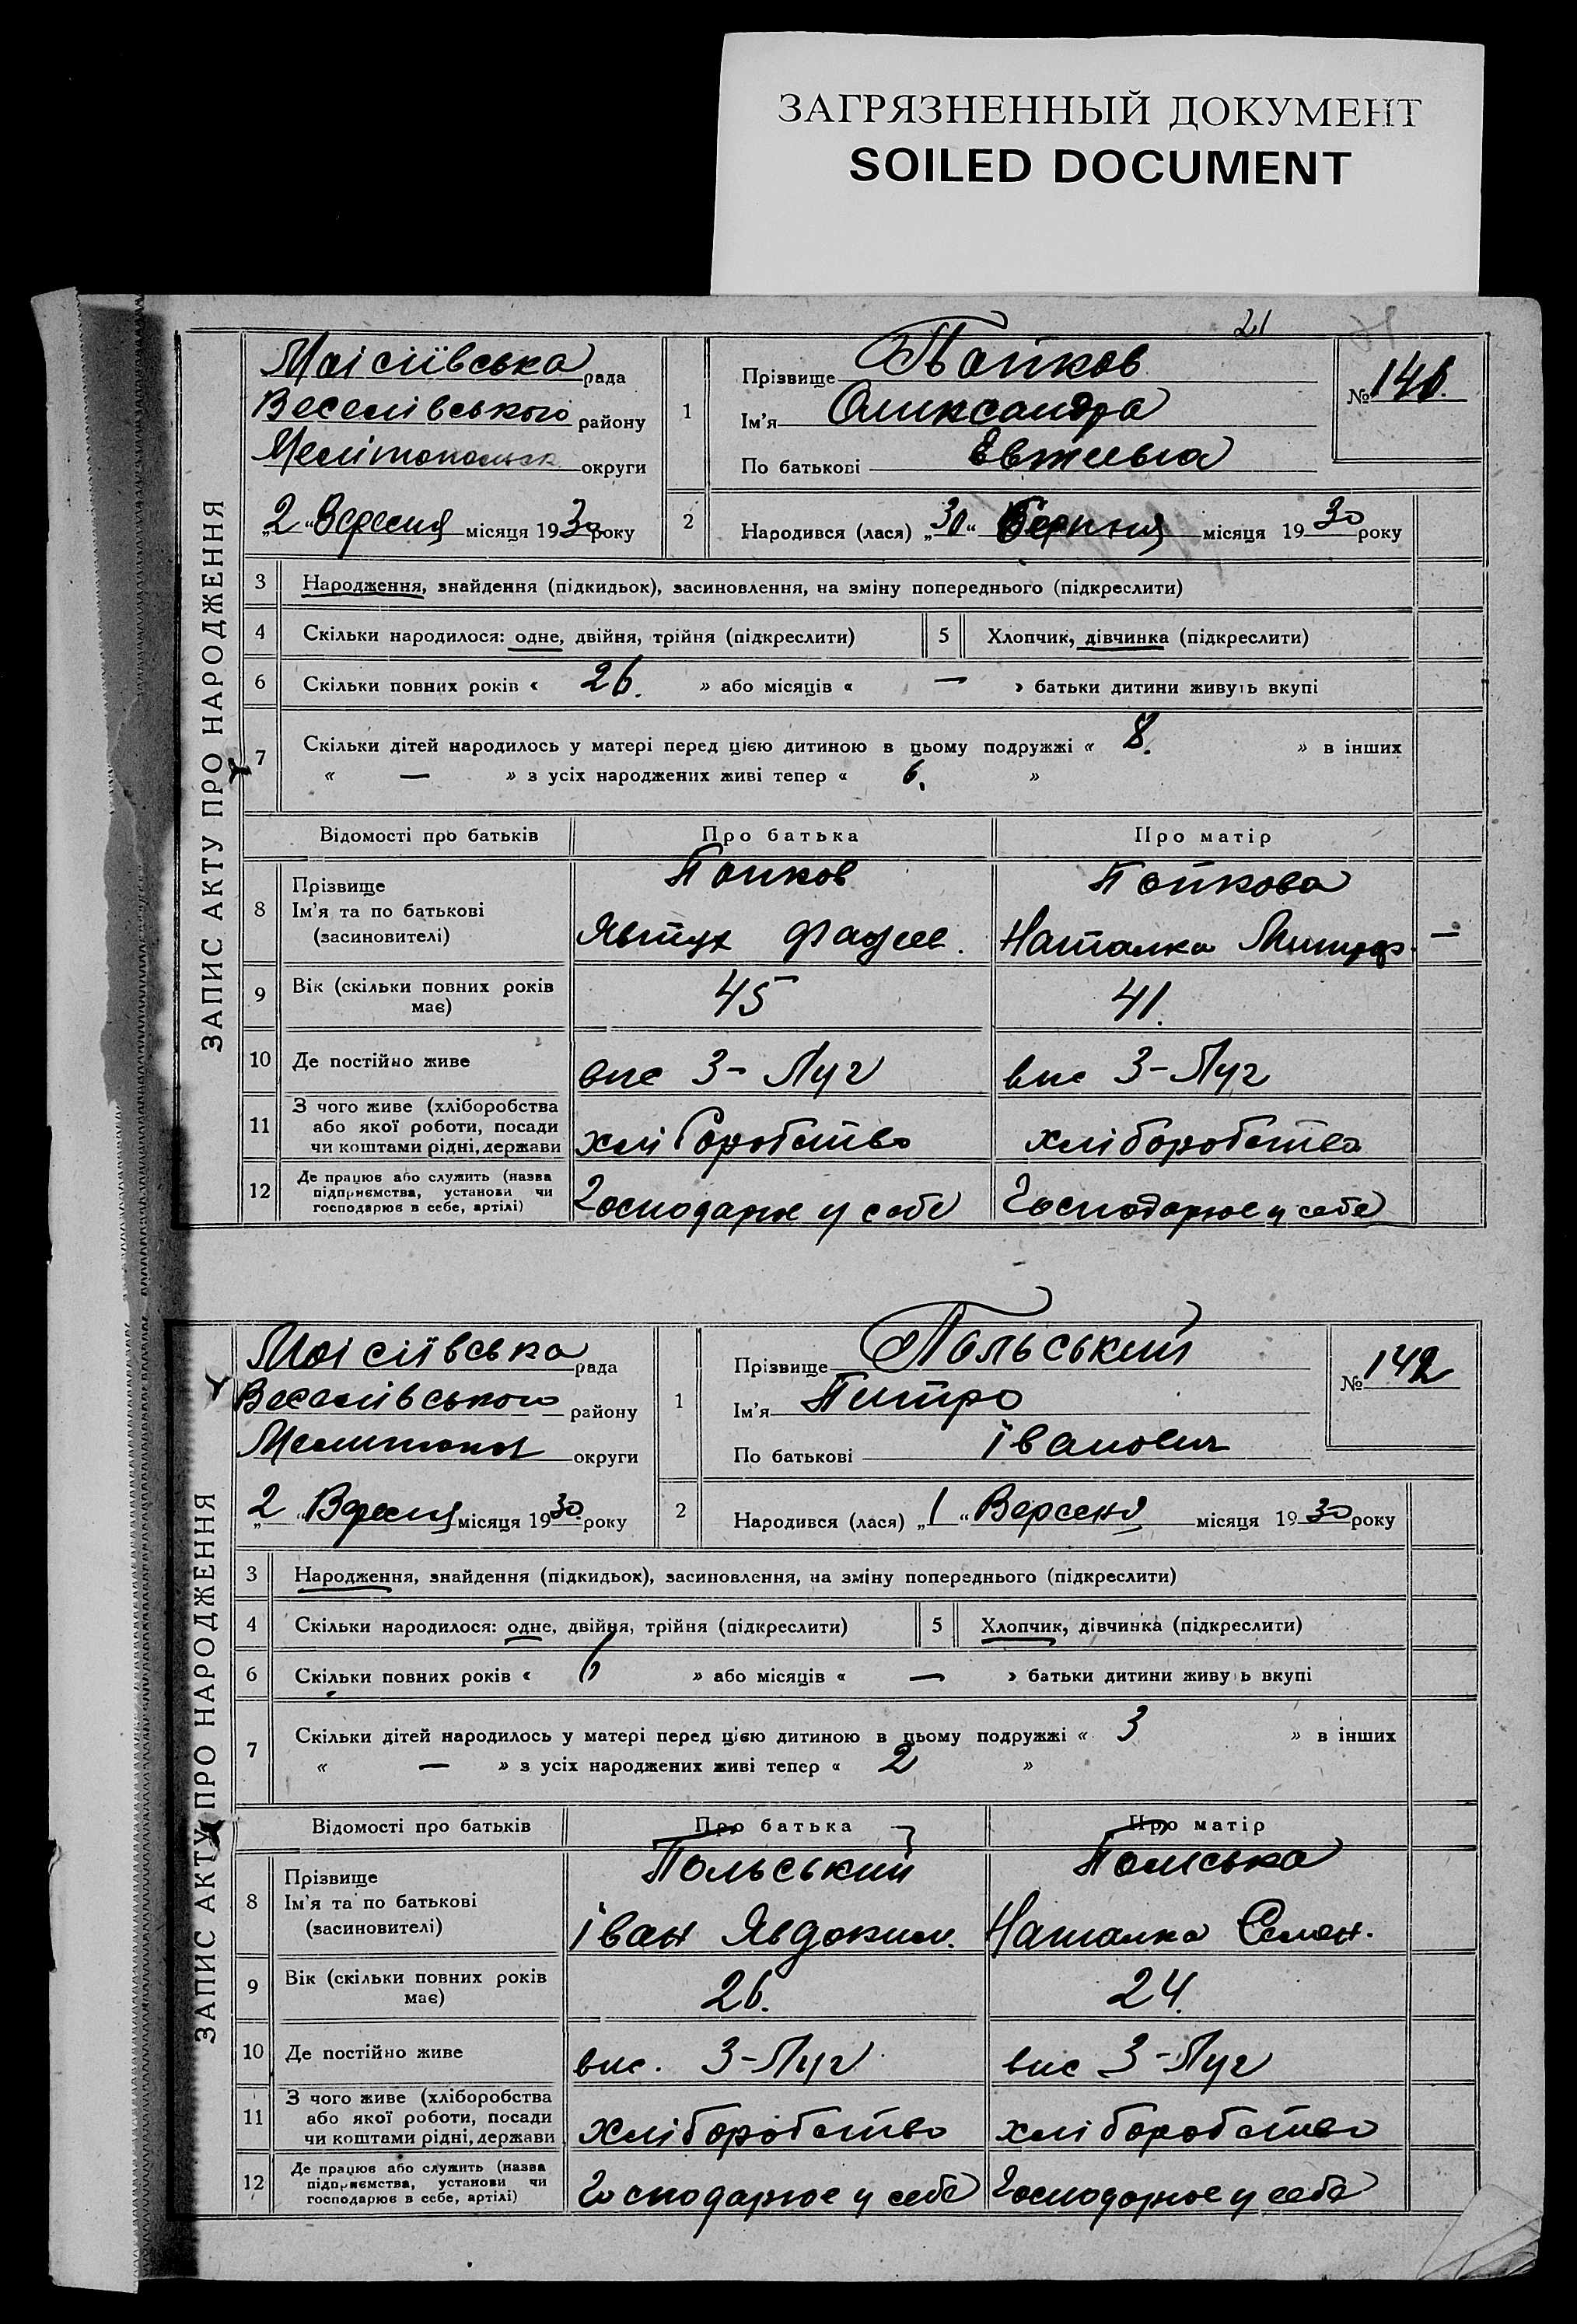 ЗАГРЯЗНЕННЫЙ ДОКУМЕНТ
SOILED DOCUMENT
21
ЗАПИС АКТУ ПРО НАРОДЖЕННЯ
Моісіївська рада
Веселівського району
Мелітопольск округи
„2“ Вересня місяця 1930 року
1
Прізвище Попков
Ім'я Олександра
По батькові
№
2
Народився (лася) „30“ Серпня місяця 1930 року
3 Народження, знайдення (підкидьок), засиновлення, на зміну попереднього (підкреслити)
4 Скільки народилося: одне, двійня, трійня (підкреслити)
5 Хлопчик, дівчинка (підкреслити)
6 Скільки повних років « 26. » або місяців « — » батьки дитини живуть вкупі
7 Скільки дітей народилось у матері перед цією дитиною в цьому подружжі « 8. » в інших
« — » з усіх народжених живі тепер « 6. »
Відомості про батьків Про батька Про матір
8 Прізвище
Ім'я та по батькові
(засиновителі)
Попков
Явтух Фадее.
Попкова
Наталка —
9 Вік (скільки повних років має) 45 41.
10 Де постійно живе вис 3-Луг вис 3-Луг
11 З чого живе (хліборобства
або якої роботи, посади
чи коштами рідні, держави
хліборобство хліборобство
12 Де працює або служить (назва
підприємства, установи чи
господарює в себе, артілі)
Господарює у себе Господарює у себе
ЗАПИС АКТУ ПРО НАРОДЖЕННЯ
Моісіївська рада
Веселівського району
Мелитопол округи
„2“ Вересня місяця 1930 року
1
Прізвище Польський
Ім'я Питро
По батькові Іванович
№ 142
2
Народився (лася) „1“ Вересня місяця 1930 року
3 Народження, знайдення (підкидьок), засиновлення, на зміну попереднього (підкреслити)
4 Скільки народилося: одне, двійня, трійня (підкреслити)
5 Хлопчик, дівчинка (підкреслити)
6 Скільки повних років « 6 » або місяців « — » батьки дитини живуть вкупі
7 Скільки дітей народилось у матері перед цією дитиною в цьому подружжі « 3 » в інших
« — » з усіх народжених живі тепер « 2 »
Відомості про батьків Про батька Про матір
8 Прізвище
Ім'я та по батькові
(засиновителі)
Польський
Іван Явдоким.
Польська
Наталка Семен.
9 Вік (скільки повних років має) 26. 24.
10 Де постійно живе вис. 3-Луг вис 3-Луг
11 З чого живе (хліборобства
або якої роботи, посади
чи коштами рідні, держави
хліборобство хліборобство
12 Де працює або служить (назва
підприємства, установи чи
господарює в себе, артілі)
Господарює у себе Господарює у себе